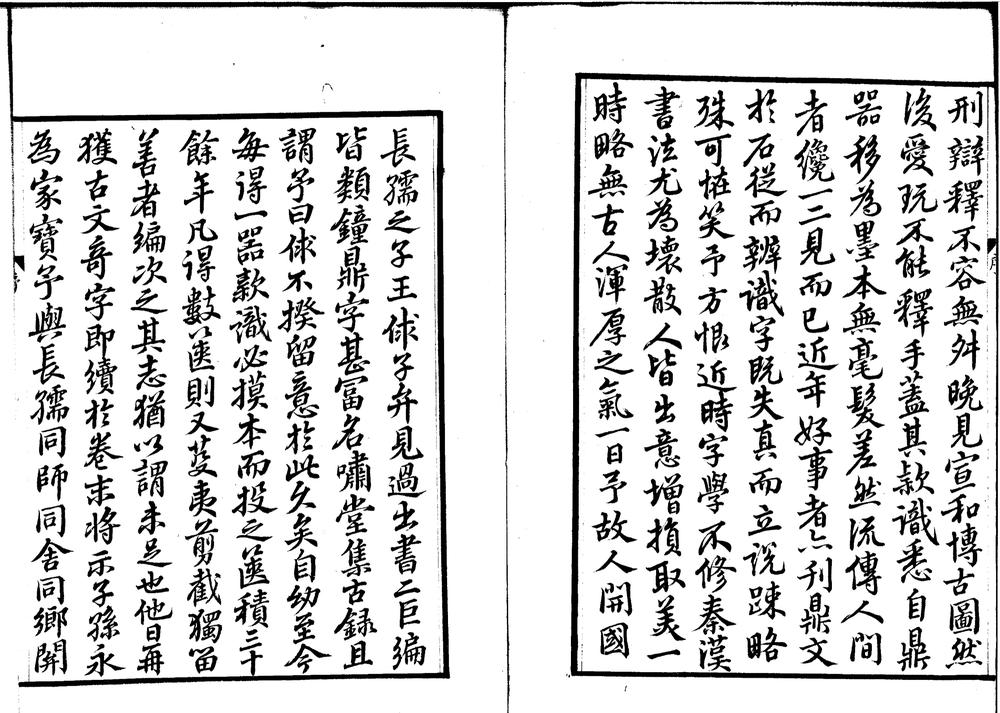 刑辯釋不容無舛晚見宣和博古圖然
後愛玩不能釋手蓋其款識悉自鼎
器移為墨本無毫髮差然流傳人間
者纔一二見而已近年好事者亦刊鼎文
於石從而辨識字既失真而立說踈略
殊可恠笑予方恨近時字學不修秦漢
書法尤為壞散人皆出意增損取美一
時略無古人渾厚之氣一日予故人開國
長孺之子王俅子弁見過出書二巨編
皆類鐘鼎字甚冨名嘯堂集古録且
謂予曰俅不揆留意於此久矣自幼至今
每得一器款識必摸本而投之篋積三十
餘年凡得數篋則又芟夷剪截獨留
善者編次之其志猶以謂未足也他日再
獲古文竒字即續於卷末将示子孫永
為家寶予與長孺同師同舍同鄉開
序